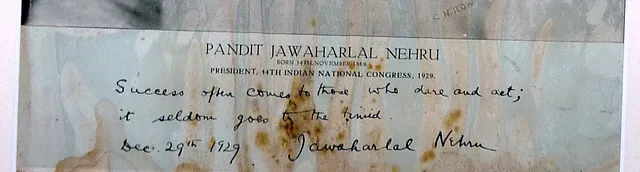 C.H.ROW
PANDIT JAWAHARLAL NEHRU
BORN 14TH, NOVEMBER, 1889.
PRESIDENT, 44TH INDIAN NATIONAL CONGRESS, 1929.
Success often comes to those who dare and act;
it seldom goes to the timid.
Dec. 29th 1929 Jawaharlal Nehru